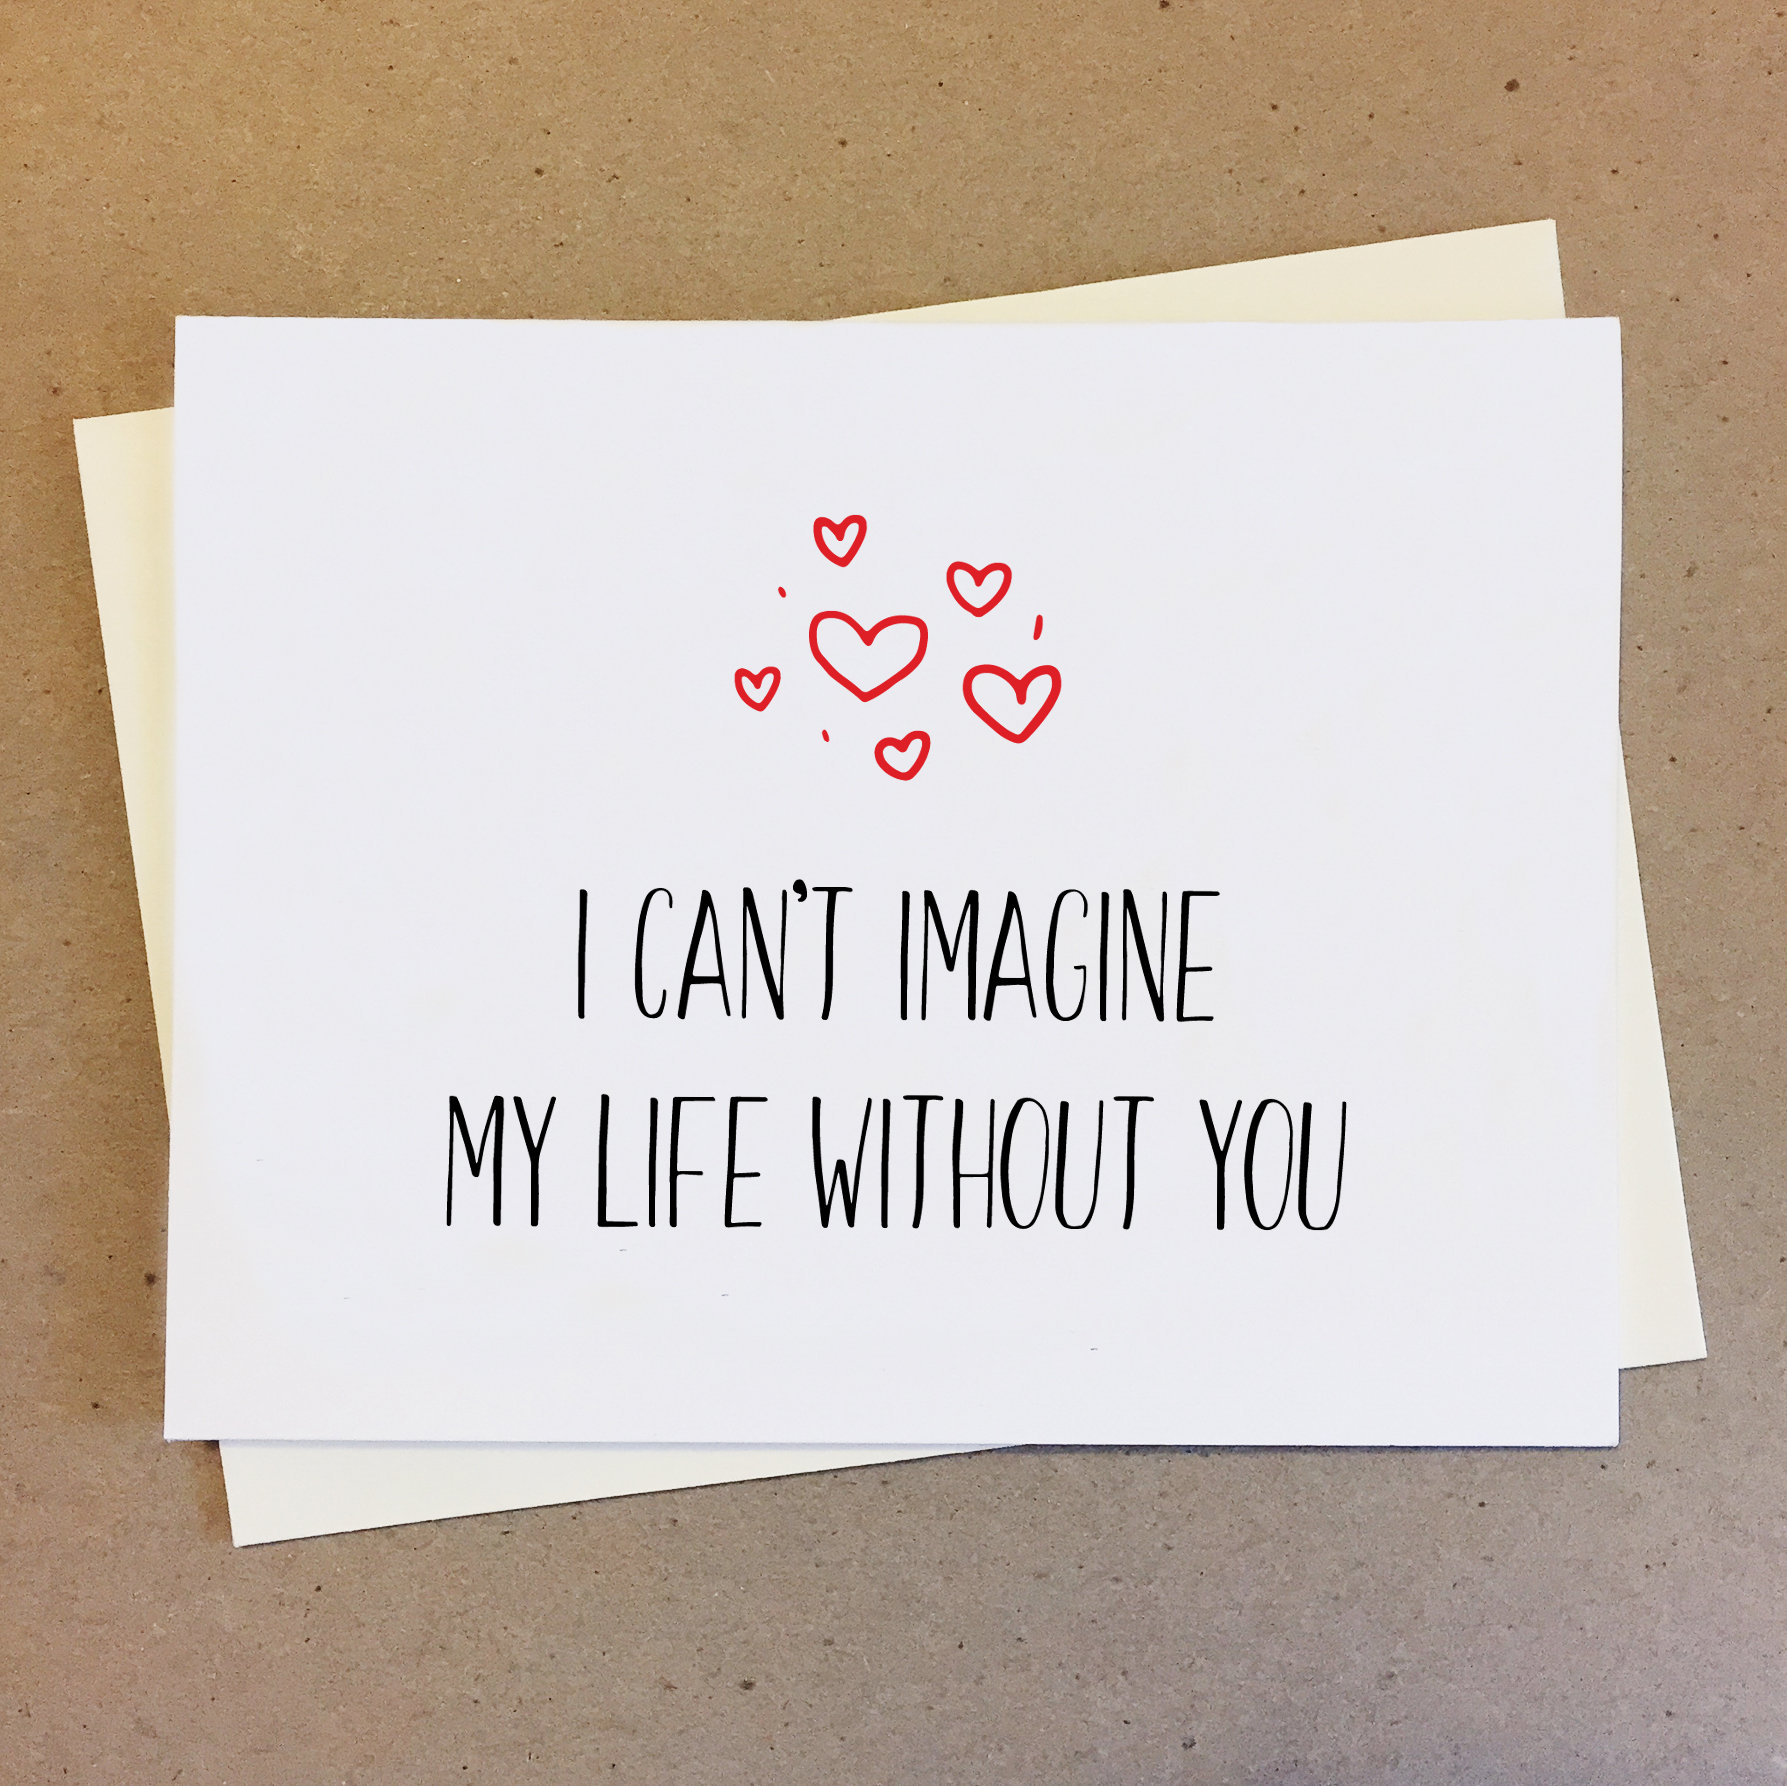 I CAN'T IMAGINE
MY LIFE WITHOUT YOU